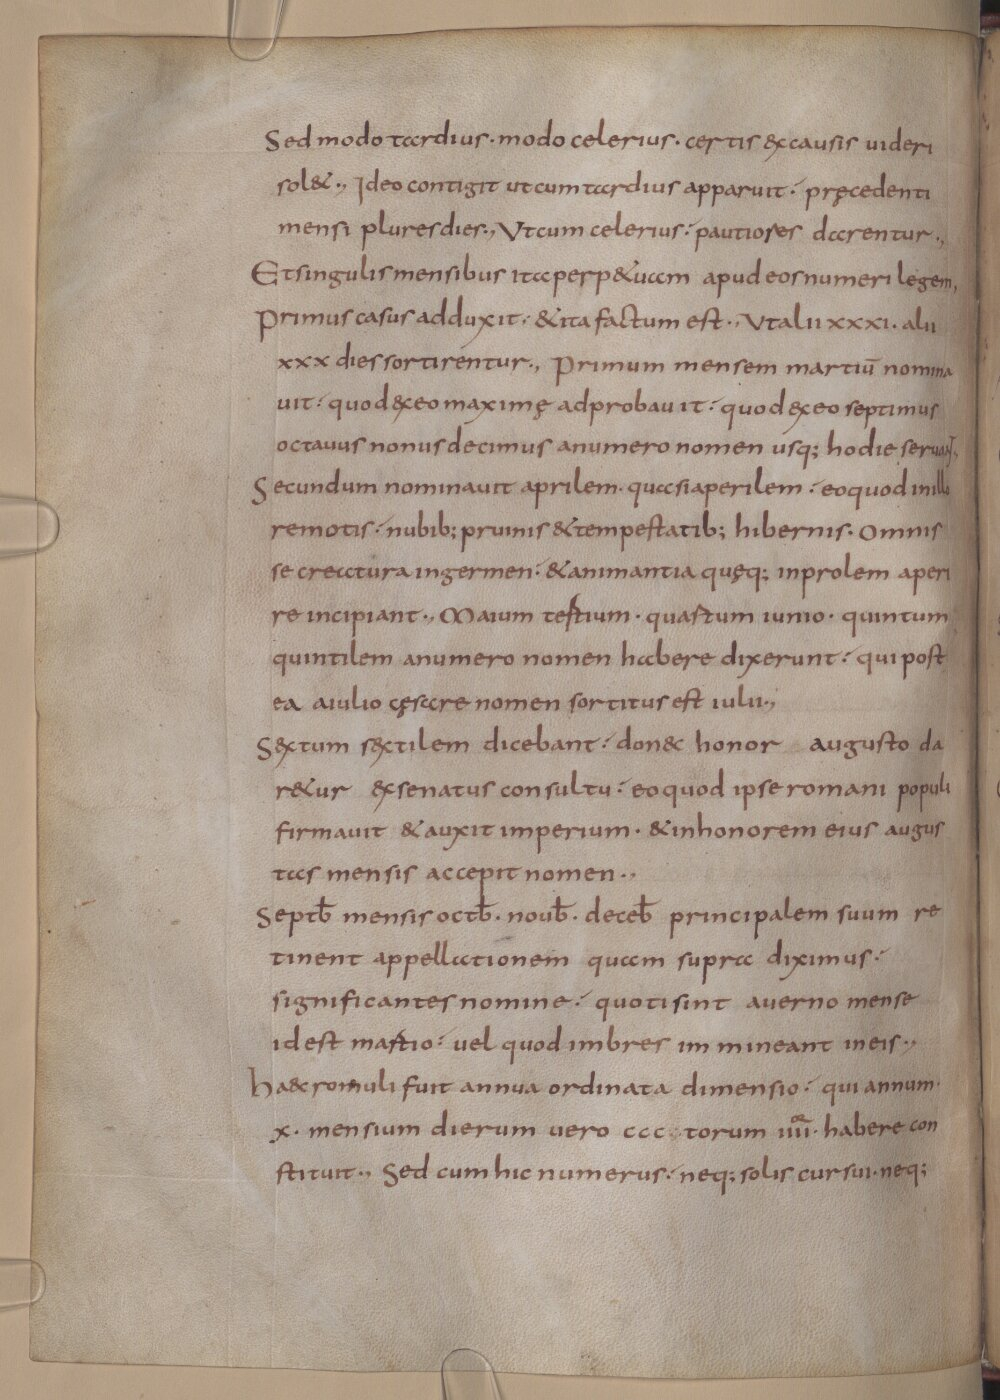 Sed modo tardius · modo celerius · certis & causis uideri
sol&·, Ideo contigit ut cum tardius apparuit : pręcedenti
mensi plures dies·, Vt cum celerius : pautiores darentur·,
Et singulis mensibus ita perp&uam apud eos numeri legem,
Primus casus adduxit : & ita factum est·, Vt alii xxxi· alii
xxx dies sortirentur·, Primum mensem martiū nomina
uit : quod &x eo maximę adprobauit : quod &x eo septimus
octauus nonus decimus a numero nomen usq; hodie seruant·,
Secundum nominauit aprilem· quasi aperilem : eo quod in illo
remotis : nubib; pruinis & tempestatib; hibernis· omnis
se creatura in germen : & animantia quęq; in prolem aperi
re incipiant·, Maium tertium · quartum iunio · quintum
quintilem a numero nomen habere dixerunt : qui post
ea a iulio cęsare nomen sortitus est iulii·,
S&xtum s&xtilem dicebant : donec honor augusto da
r&ur &x senatus consultu : eo quod ipse romani populi
firmauit & auxit imperium · & in honorem eius augus
tas mensis accepit nomen·,
Septb̄ mensis octb̄· noub̄· deceb̄ principalem suum re
tinent appellationem quam supra diximus :
significantes nomine : quoti sint a uerno mense
id est martio : uel quod imbres immineant in eis·,
Haec romuli fuit annua ordinata dimensio : qui annum·
x· mensium dierum uero ccc·torum iiii· habere con
stituit·, Sed cum hic numerus : neq; solis cursui· neq;